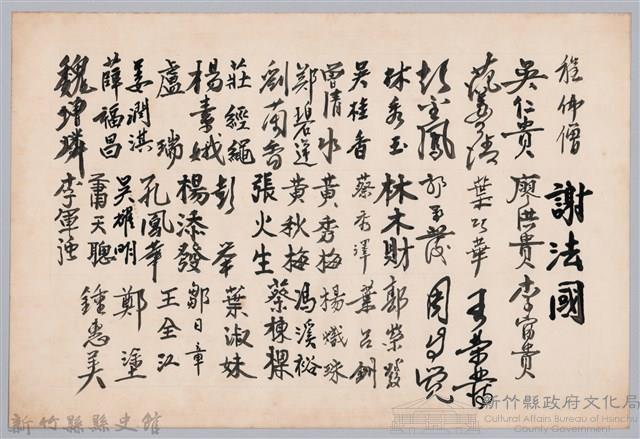 佛僧 謝法國
吳仁貴 廖洪貴 李富貴
范姜 清 葉 華 王榮發
彭 鳳 發
林秀玉 林木財 郭榮發
吳桂香 蔡 澤 葉呂釧
曾清水 黃秀梅 楊熾珠
鄭碧蓮 黃秋梅 馮溪裕
劉蘭香 張火生 蔡棟樑
莊經繩 彭 華 葉淑妹
楊素娥 楊添發 鄒日章
盧 瑞 孔鳳華 王全江
姜潤淇 吳雄明 鄭 塗
薛福昌 蕭天聰 鍾惠美
魏增璘 李軍強
新竹縣縣史館
新竹縣政府文化局
Cultural Affairs Bureau of Hsinchu
County Government